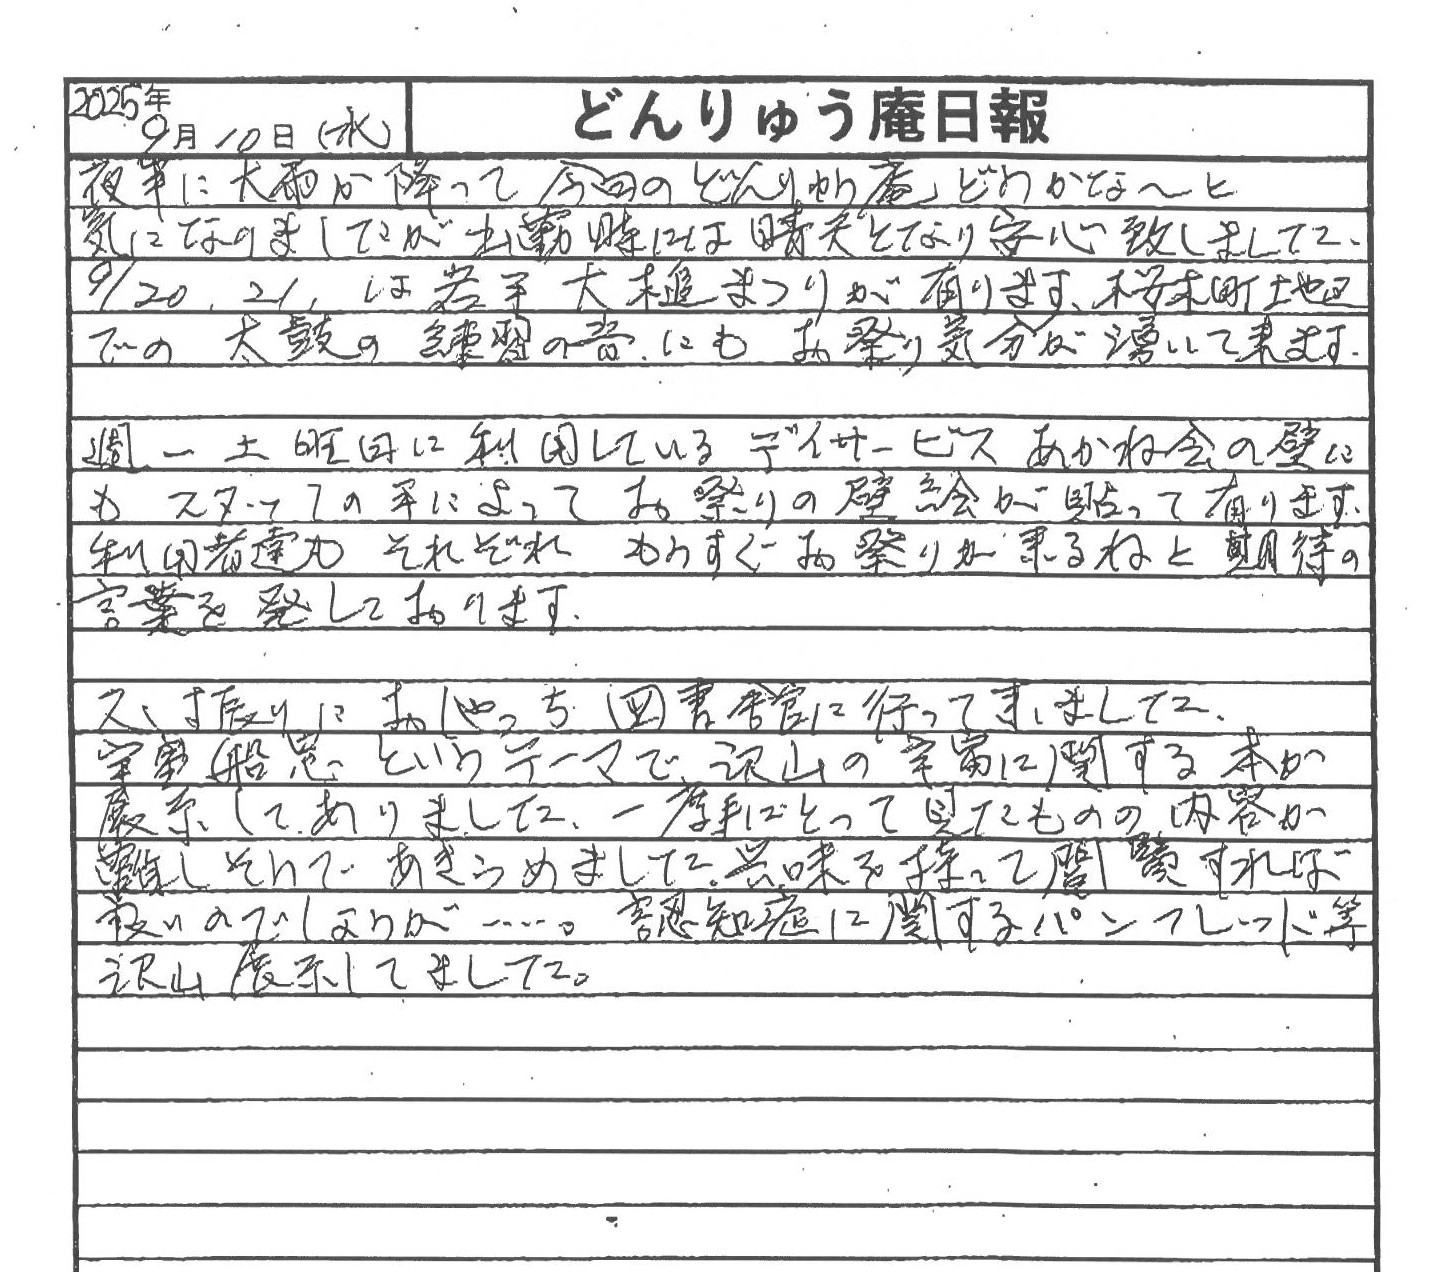 2025年
9月10日(水)
どんりゅう庵日報
夜半に大雨が降って今回のどんりゅう庵、どうかな〜と
気になりましたが出勤時には晴天となり安心致しました、
9/20、21、は若手大槌まつりが有ります、桜木町地区
での太鼓の練習の音にもお祭り気分が湧いて来ます.
週一土曜日に利用しているデイサービスあかね会の壁に
もスタッフの手によってお祭りの壁絵が貼って有ります.
利用者達もそれぞれもうすぐお祭りが来るねと期待の
言葉を発しております.
又、はおしゃっち図書館に行って来ました、
宇宙船 というテーマで、沢山の宇宙に関する本が
展示してありました、一度手にとって見たものの内容が
難しそうであきらめました、興味を持って閲覧すれば
良いのでしょうが……。認知症に関するパンフレット等
沢山展示してました。